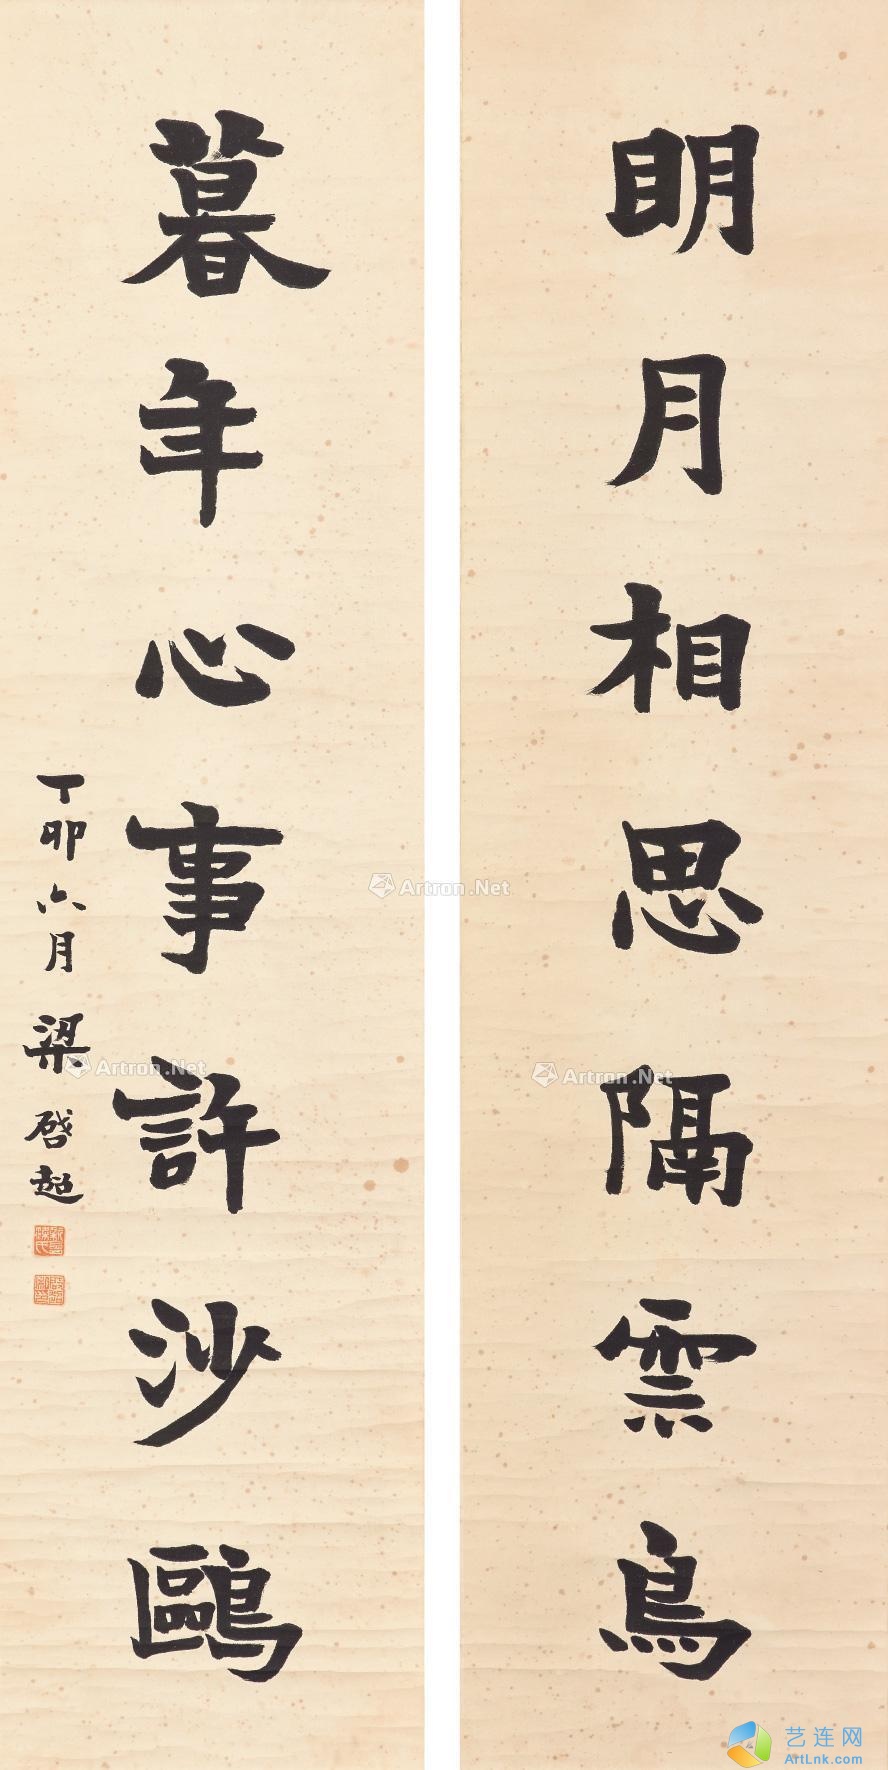 眀月相思隔雲鳥
暮年心事許沙鷗
丁卯六月
梁啓超
Artron.Net
Artron.Net
Artron.Net
艺连网
ArtLnk.com